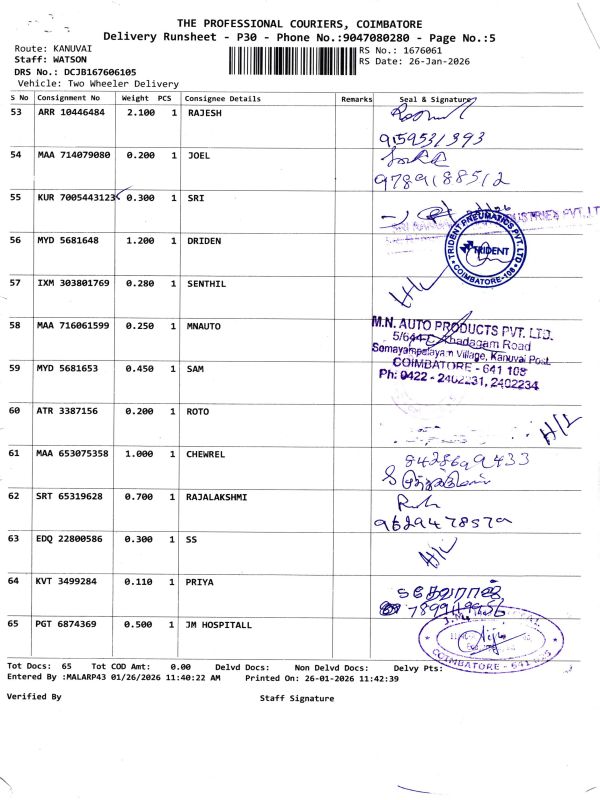 THE PROFESSIONAL COURIERS, COIMBATORE
Delivery Runsheet - P30 - Phone No.:9047080280 - Page No.:5
Route: KANUVAI
Staff: WATSON
DRS No.: DCJB167606105
Vehicle: Two Wheeler Delivery
RS No.: 1676061
RS Date: 26-Jan-2026
S No Consignment No Weight PCS Consignee Details Remarks Seal & Signature
53 ARR 10446484 2.100 1 RAJESH
9159531393
54 MAA 714079080 0.200 1 JOEL
9789188512
55 KUR 7005443123 0.300 1 SRI
INDUSTRIES PVT.LT
56 MYD 5681648 1.200 1 DRIDEN
TRIDENT PNEUMATICS PVT. LTD
TRIDENT
COIMBATORE-108
57 IXM 303801769 0.280 1 SENTHIL
H/L
58 MAA 716061599 0.250 1 MNAUTO
M.N. AUTO PRODUCTS PVT. LTD.
5/644-C, Thadagam Road
Somayampalayam Village, Kanuvai Post
COIMBATORE - 641 108
Ph: 0422 - 2402231, 2402234
59 MYD 5681653 0.450 1 SAM
60 ATR 3387156 0.200 1 ROTO
H/L
61 MAA 653075358 1.000 1 CHEWREL
8428699433
62 SRT 65319628 0.700 1 RAJALAKSHMI
9629478579
63 EDQ 22800586 0.300 1 SS
H/L
64 KVT 3499284 0.110 1 PRIYA
65 PGT 6874369 0.500 1 JM HOSPITALL
COIMBATORE - 641
Tot Docs: 65 Tot COD Amt: 0.00 Delvd Docs: Non Delvd Docs: Delvy Pts:
Entered By :MALARP43 01/26/2026 11:40:22 AM Printed On: 26-01-2026 11:42:39
Verified By Staff Signature